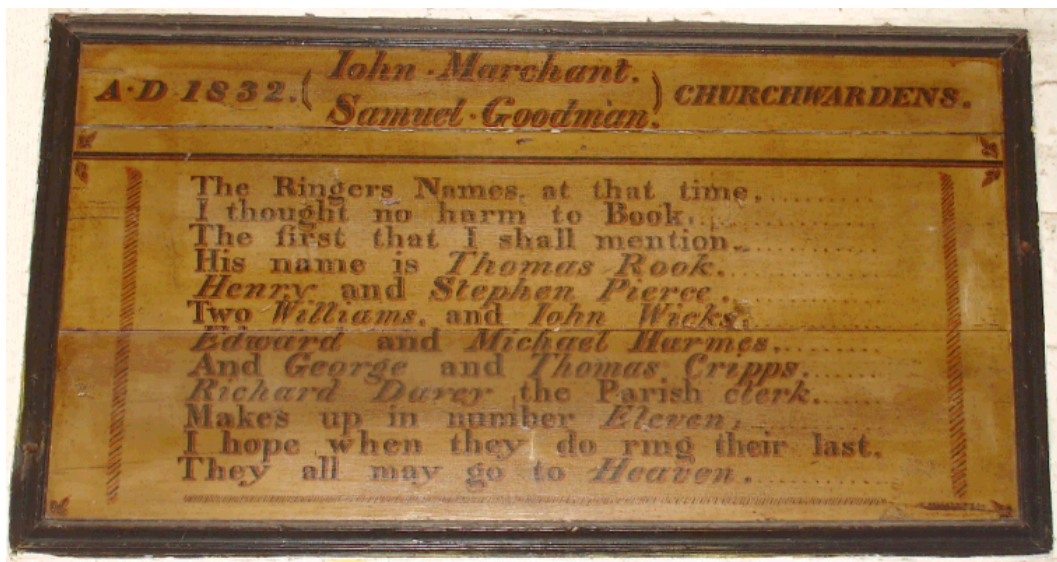 A·D 1832. ( Iohn·Marchant.
Samuel·Goodman. ) CHURCHWARDENS.
The Ringers Names, at that time,
I thought no harm to Book,
The first that I shall mention,
His name is Thomas Rook.
Henry and Stephen Pierce,
Two Williams, and Iohn Wicks,
Edward and Michael Harmes,
And George and Thomas Cripps.
Richard Davey the Parish clerk.
Makes up in number Eleven,
I hope when they do ring their last.
They all may go to Heaven.